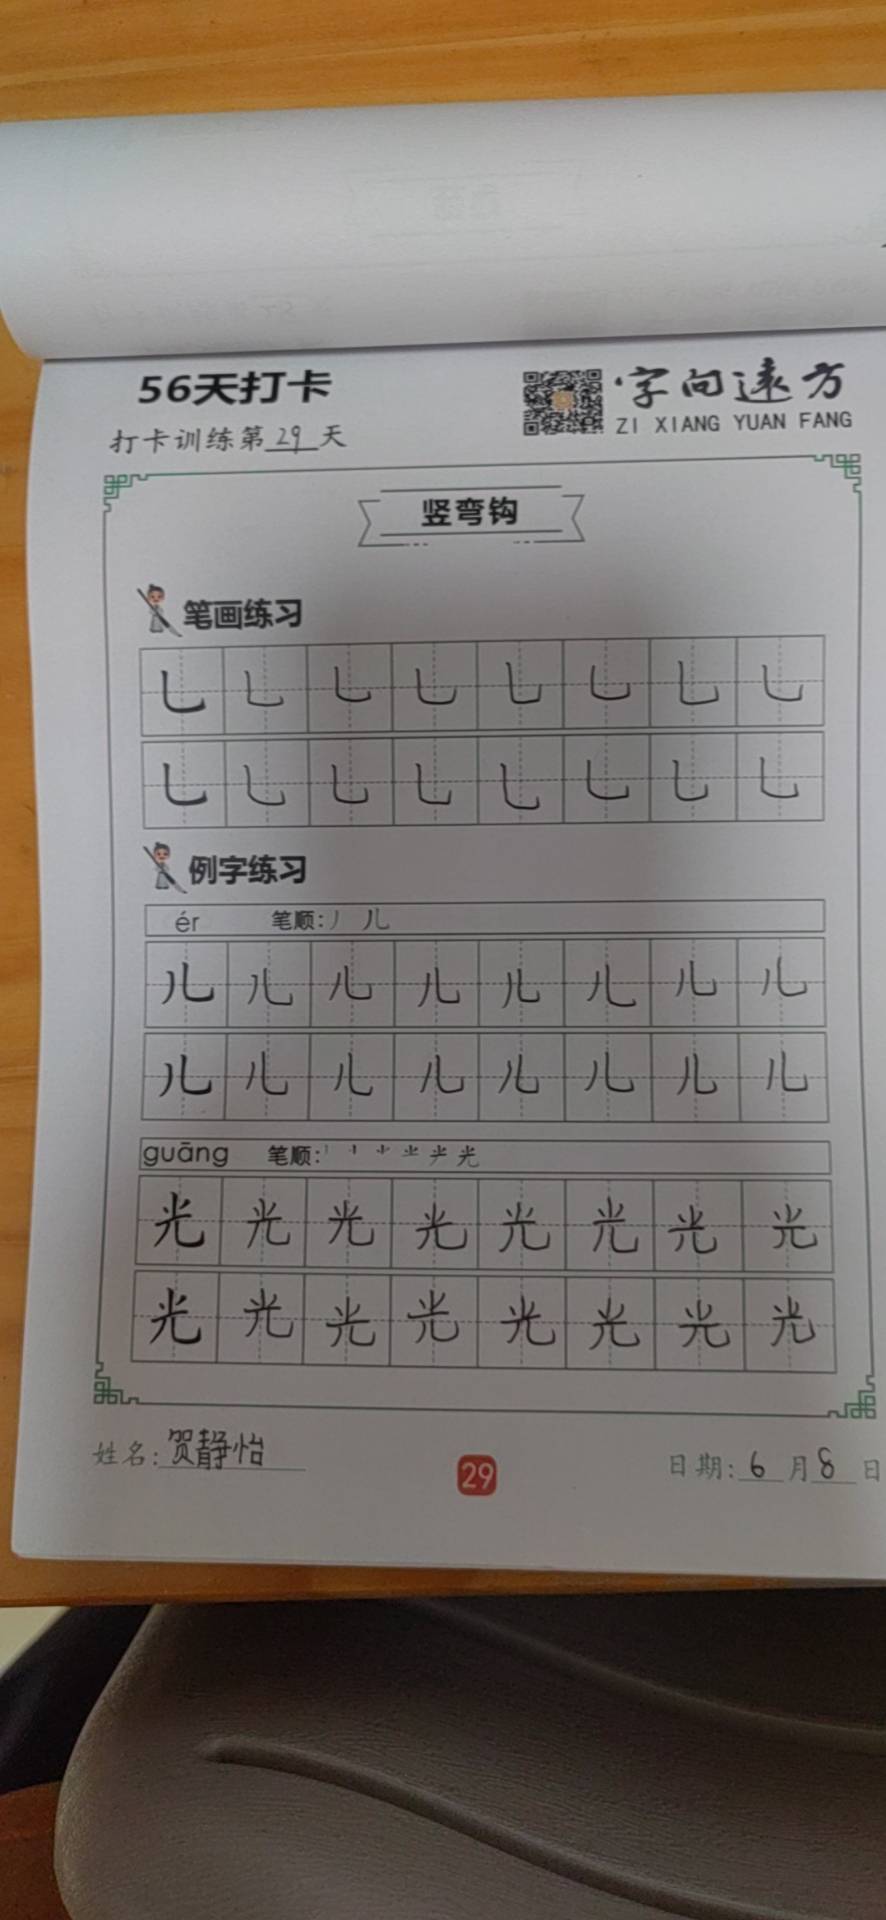 56天打卡
字向远方
ZI XIANG YUAN FANG
打卡训练第29天
竖弯钩
笔画练习
乚 乚 乚 乚 乚 乚 乚 乚
乚 乚 乚 乚 乚 乚 乚 乚
例字练习
ér 笔顺:丿 儿
儿 儿 儿 儿 儿 儿 儿 儿
儿 儿 儿 儿 儿 儿 儿 儿
guāng 笔顺: 光
光 光 光 光 光 光 光 光
光 光 光 光 光 光 光 光
姓名:贺静怡
29
日期:6月8日